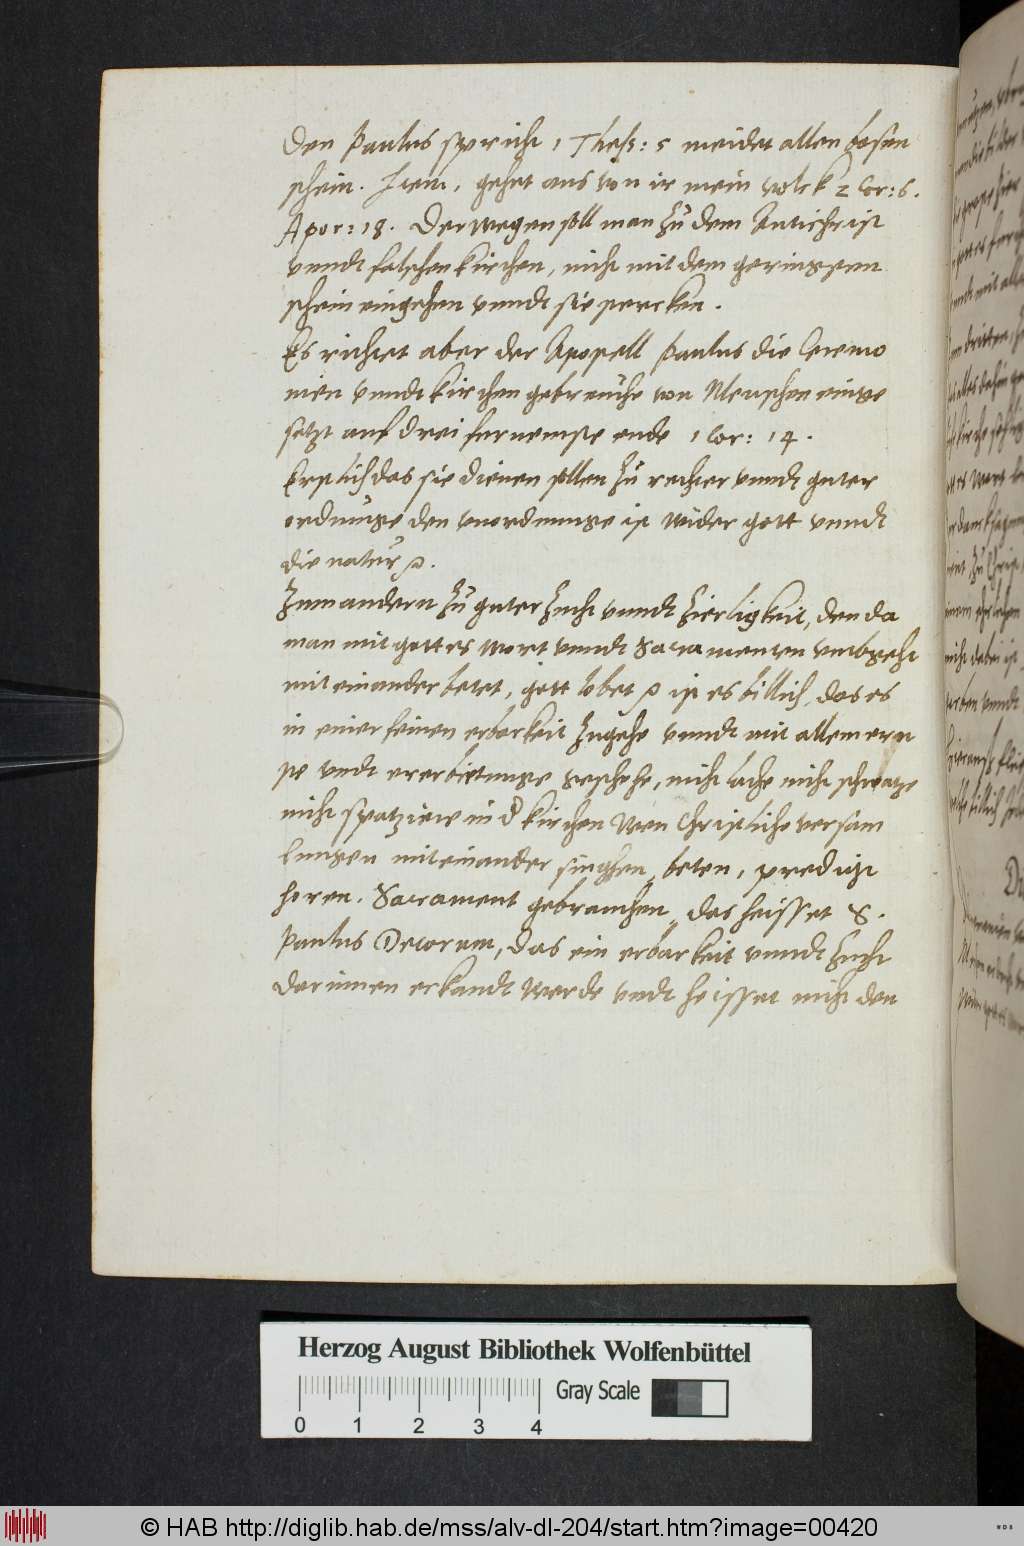 Den Paulus spricht 1 Theß: 5 meidet allen bosen
schein. Item, gehet aus von ir mein volck 2 Cor: 6.
Apoc: 18. Derwegen soll man zu dem Antichrist
vnndt falschen kirchen, nicht mit dem geringsenn
schein eingehen vnndt sie stercken.
Es richtet aber der Apostell Paulus die Ceremo
nien vnndt kirchen gebreuche von Menschen einge
setzt auf drei furnemste ende 1 Cor: 14.
Erstlich das sie dienen sollen zu rechter vnndt guter
ordnunge den vnordnunge ist wider gott vnndt
die natur
Zum andern zu guter zucht vnndt zierligkeit, den da
man mit gottes wort vnndt Sacramenten vmbgeht
mit einander betet, gott lobet ist es billich, das es
in einer feinen erbarkeit zugehe vnndt mit allem ern
ste vndt ererbietunge geschehe, nicht lache nicht schwatze
nicht spatziere in d kirchen Wen Christliche versam
lungen mit einander singhen, beten, predigt
horen. Sacrament gebrauchen, das heisset S.
Paulus Decorum, das ein erbarkeit vnndt zucht
darinnen erkandt werde vndt heisset nicht den
Herzog August Bibliothek Wolfenbüttel
Gray Scale
0 1 2 3 4
© HAB http://diglib.hab.de/mss/alv-dl-204/start.htm?image=00420